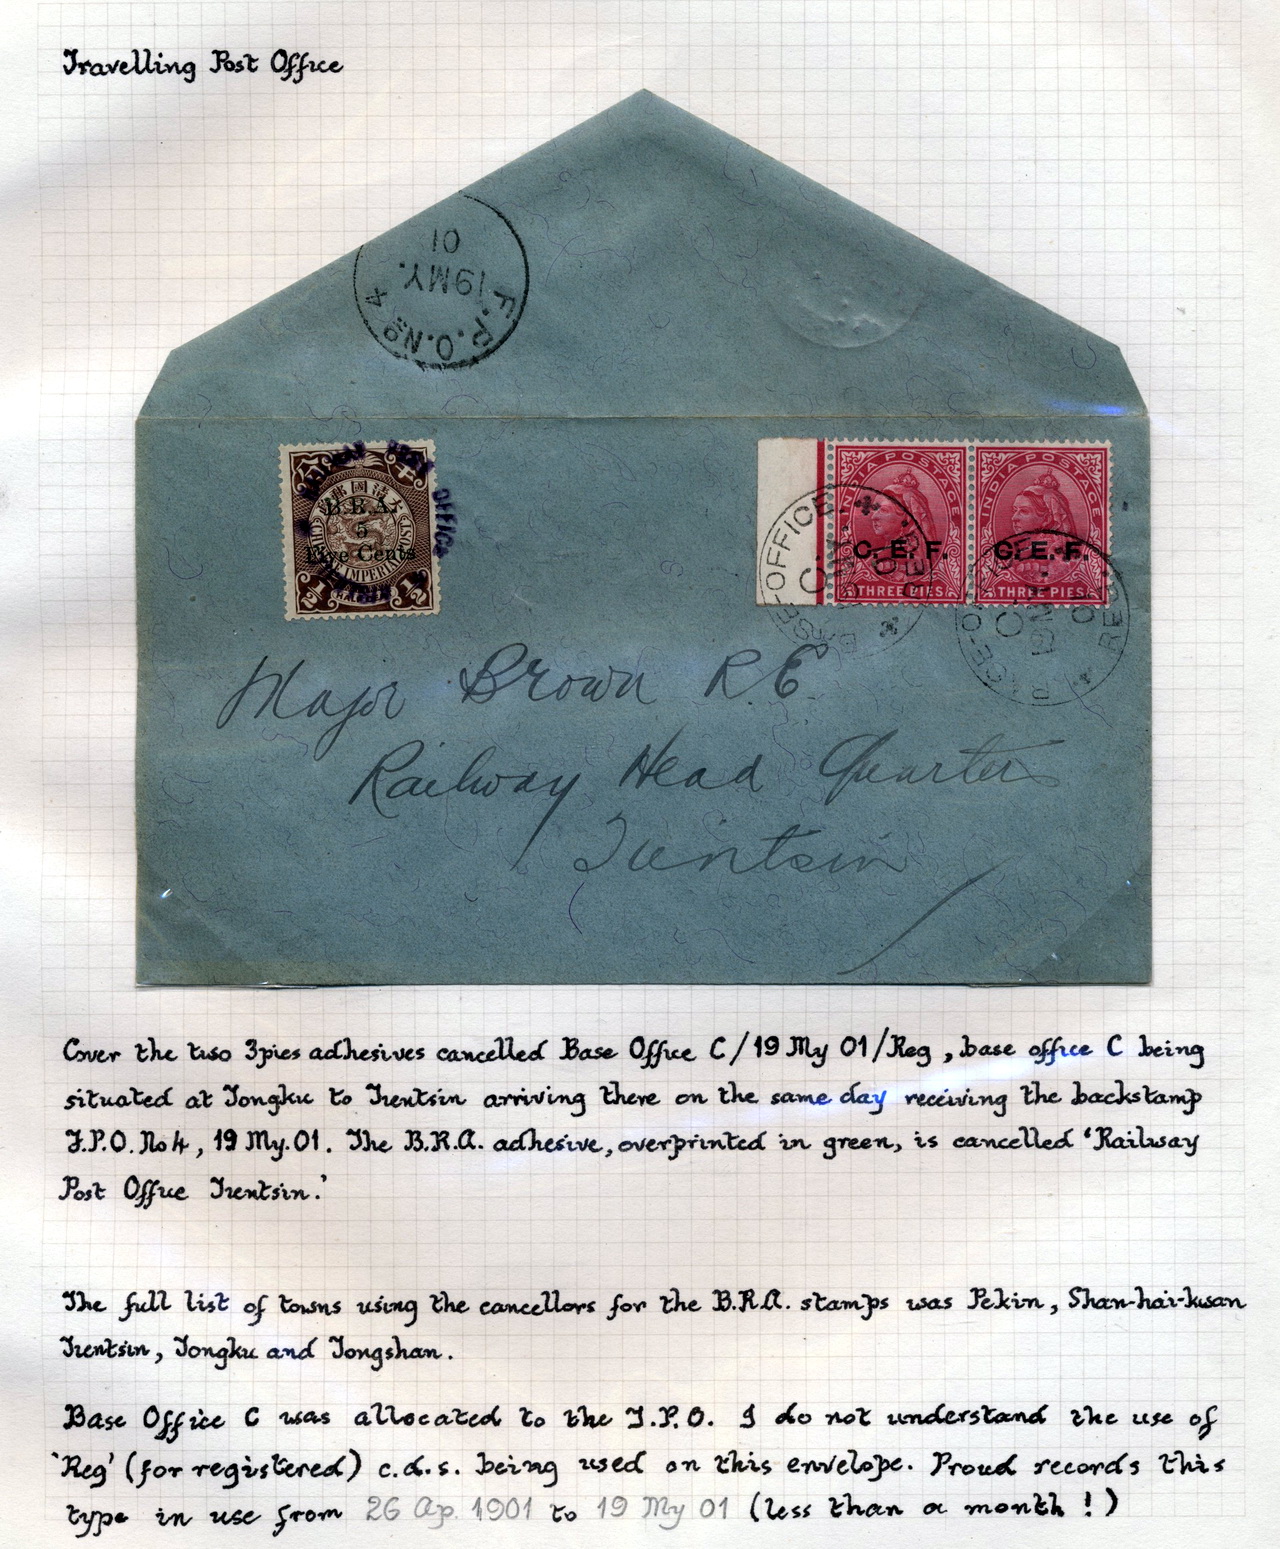 Travelling Post Office
F.P.O. No 4
19 MY.
01
RAILWAY POST OFFICE
TIENTSIN
大清國郵政
CHINESE IMPERIAL POST
B.R.A.
5
Five Cents
1/2 1/2
INDIA POSTAGE INDIA POSTAGE
C. E. F. C. E. F.
THREE PIES THREE PIES
BASE-OFFICE
C
19 MY.
01
REG
BASE-OFFICE
C
19 MY.
01
REG
Major Brown R.E
Railway Head Quarters
Tientsin
Cover the two 3pies adhesives cancelled Base Office C/19 My 01/Reg, base office C being
situated at Tongku to Tientsin arriving there on the same day receiving the backstamp
F.P.O. No 4, 19 My.01. The B.R.A. adhesive, overprinted in green, is cancelled 'Railway
Post Office Tientsin.'
The full list of towns using the cancellors for the B.R.A. stamps was Pekin, Shan-hai-kwan
Tientsin, Tongku and Tongshan.
Base Office C was allocated to the T.P.O. I do not understand the use of
'Reg' (for registered) c.d.s. being used on this envelope. Proud records this
type in use from 26 Ap. 1901 to 19 My 01 (less than a month!)